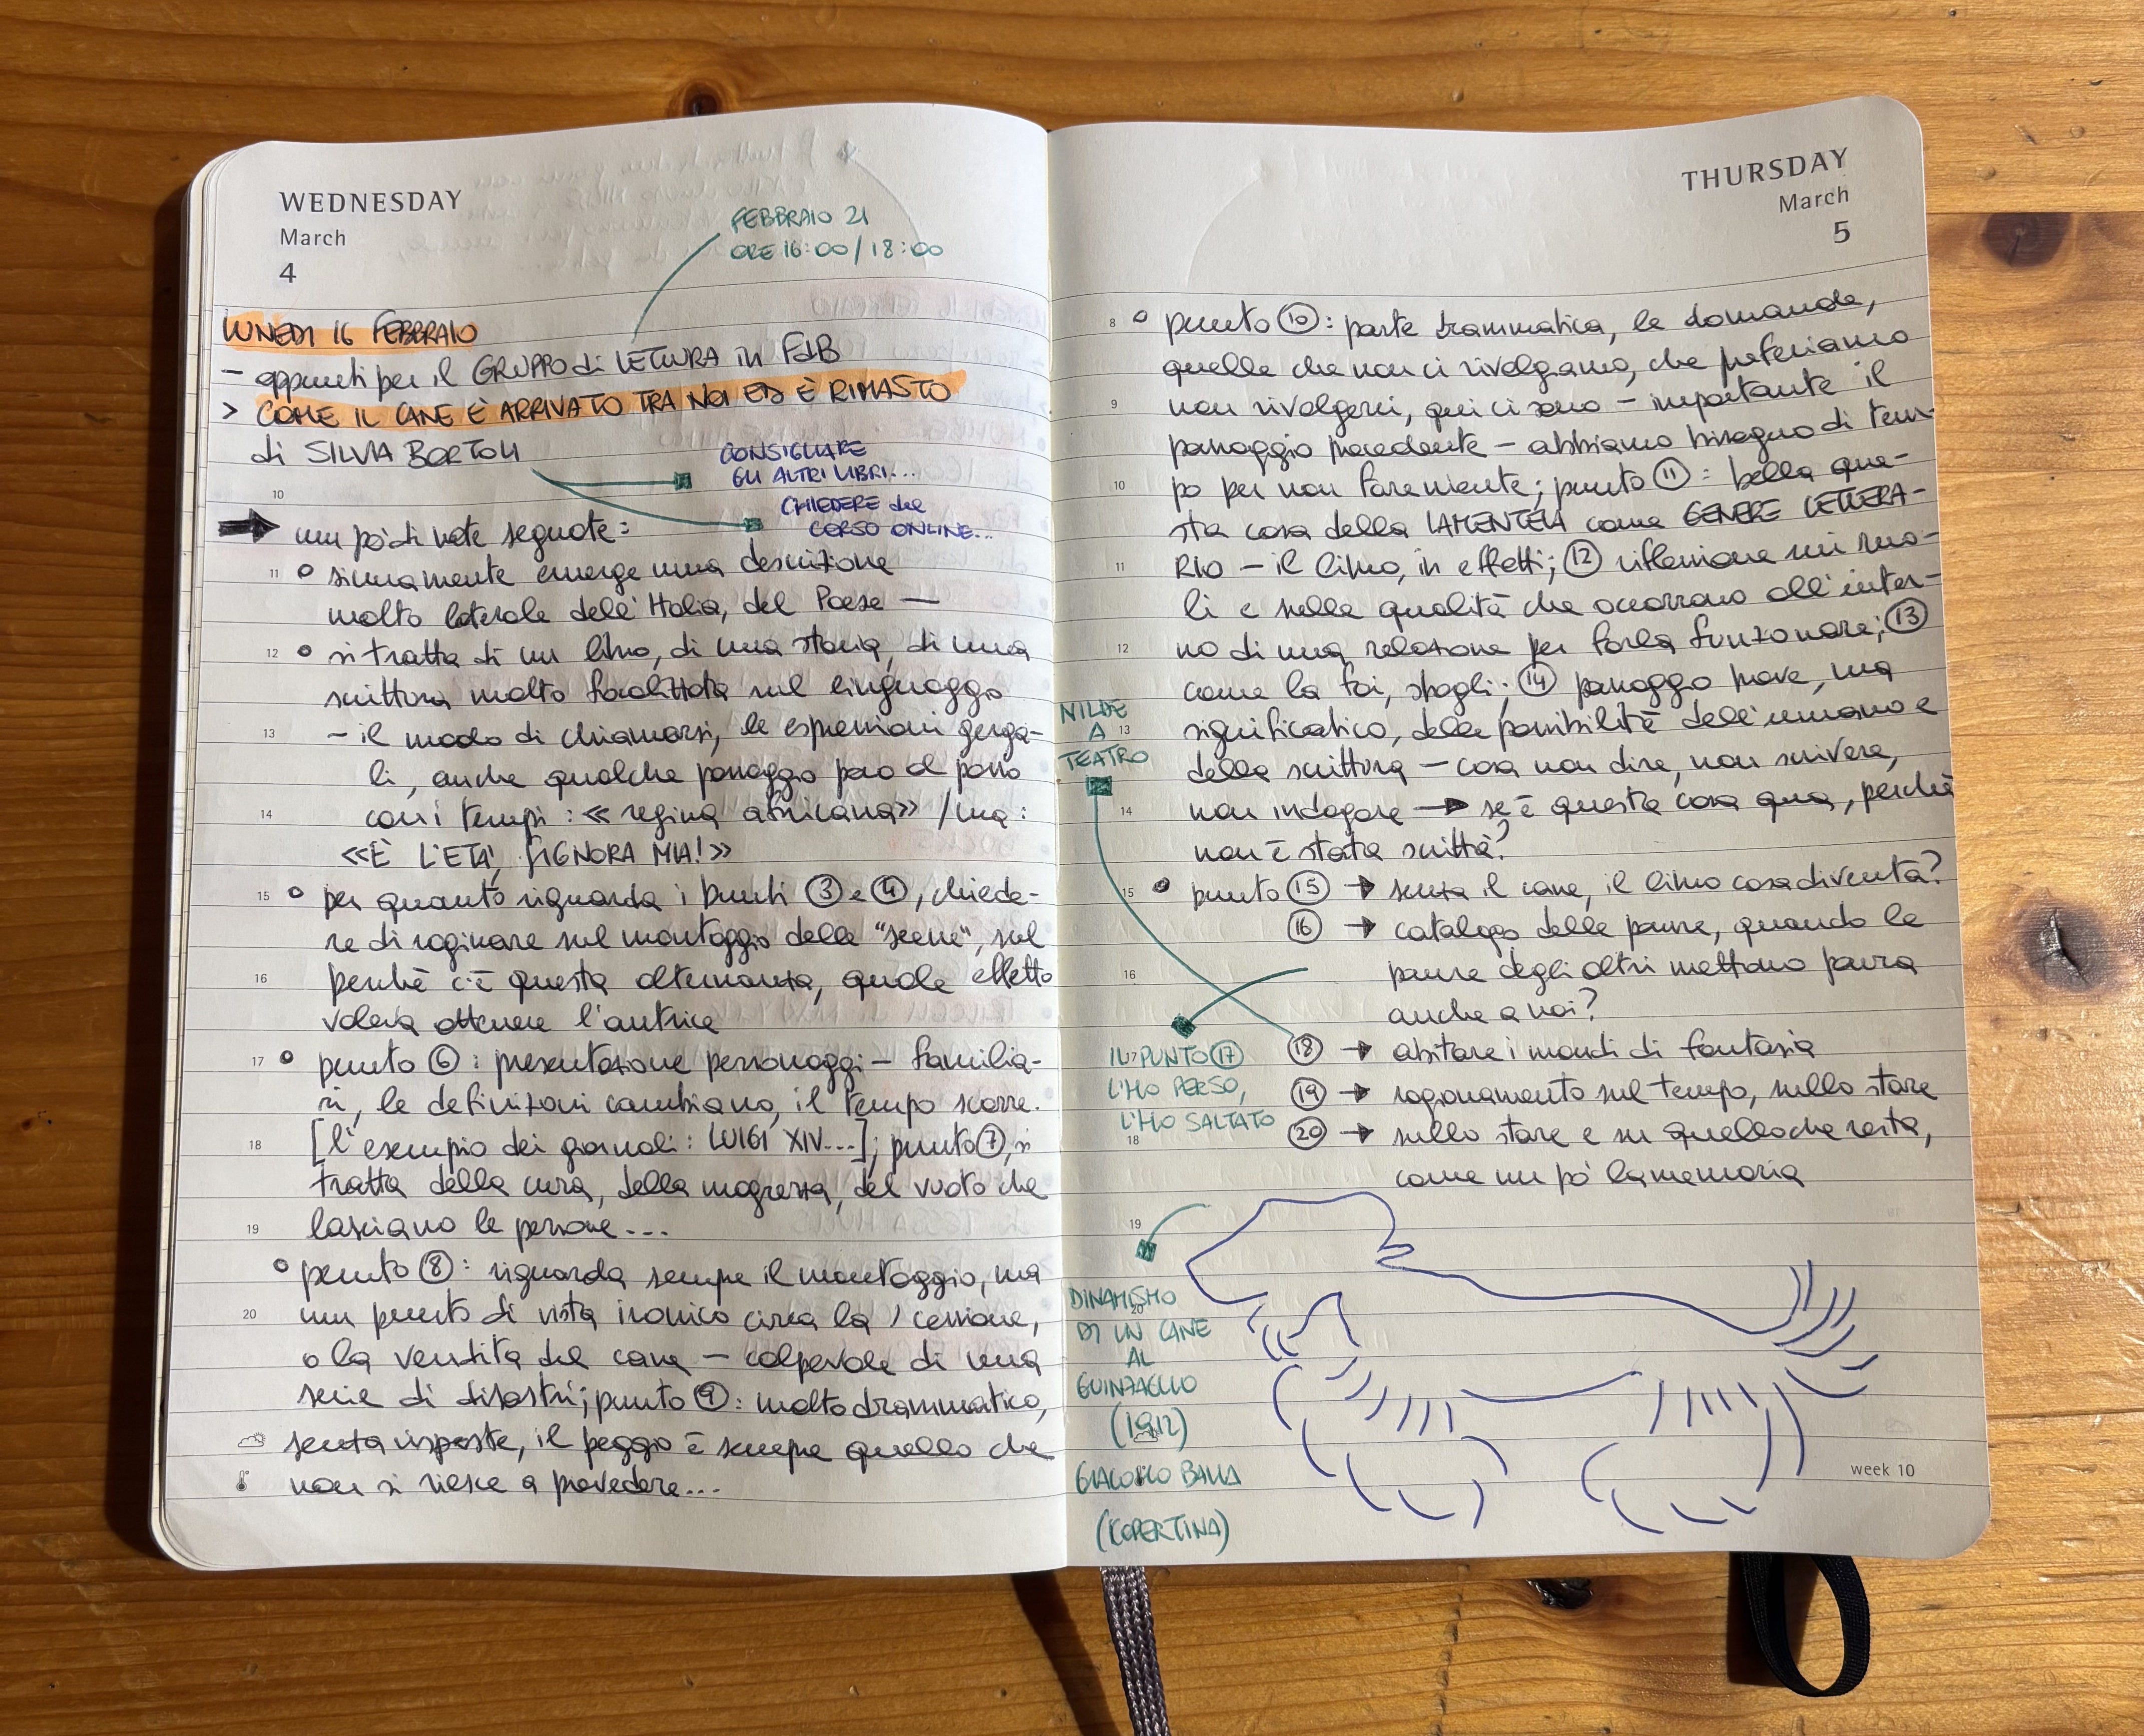 WEDNESDAY
March
4
FEBBRAIO 21
ORE 16:00/18:00
LUNEDì 16 FEBBRAIO
- appunti per il GRUPPO di LETTURA in FdB
> COME IL CANE È ARRIVATO TRA NOI ED È RIMASTO
di SILVIA BORTOLI
CONSIGLIARE
GLI ALTRI LIBRI...
CHIEDERE del
CORSO ONLINE...
10
un po' di note seguite:
11 sicuramente emerge una descrizione
molto laterale dell'Italia, del Paese —
12 si tratta di un libro, di una storia, di una
scrittura molto focalizzata sul linguaggio
13 - il modo di chiamarsi, le espressioni gerga-
li, anche qualche passaggio poco al passo
14 con i tempi: «regina africana» / ma:
«È L'ETÀ, SIGNORA MIA!»
15 per quanto riguarda i punti 3 e 4, chiede-
re di ragionare sul montaggio delle "scene", sul
16 perché c'è questa alternanza, quale effetto
voleva ottenere l'autrice
17 punto 6: presentazione personaggi - familia-
ri, le definizioni cambiano, il tempo scorre.
18 [l'esempio dei giornali: LUIGI XIV...]; punto 7, si
tratta della cura, della magrezza, del vuoto che
19 lasciano le persone...
punto 8: riguarda sempre il montaggio, ma
20 un punto di vista ironico circa la cessione,
o la vendita del cane - colpevole di una
serie di disastri; punto 9: molto drammatico,
senza risposte, il peggio è sempre quello che
non si riesce a prevedere...
THURSDAY
March
5
8 punto 10: parte drammatica, le domande,
quelle che non ci rivolgiamo, che preferiamo
9 non rivolgerci, qui ci sono - importante il
passaggio precedente - abbiamo bisogno di tem-
10 po per non fare niente; punto 11: bella que-
sta cosa della LAMENTELA come GENERE LETTERA-
11 RIO - il libro, in effetti; 12 riflessione sui ruo-
li e sulle qualità che occorrono all'inter-
12 no di una relazione per farla funzionare; 13
come la fai, sbagli; 14 passaggio breve, ma
13 significativo, delle possibilità dell'umano e
della scrittura - cosa non dire, non scrivere,
14 non indagare → se è questa cosa qua, perché
non è stata scritta?
NILDE
A
TEATRO
15 punto 15 → senza il cane, il libro cosa diventa?
16 → catalogo delle paure, quando le
16 paure degli altri mettono paura
anche a noi?
17 18 → abitare i mondi di fantasia
19 → ragionamento sul tempo, sullo stare
18 20 → sullo stare e su quello che resta,
come un po' la memoria
IL PUNTO 17
L'HO PERSO,
L'HO SALTATO
19
DINAMISMO
20
DI UN CANE
AL
GUINZAGLIO
(1912)
GIACOMO BALLA
(COPERTINA)
week 10